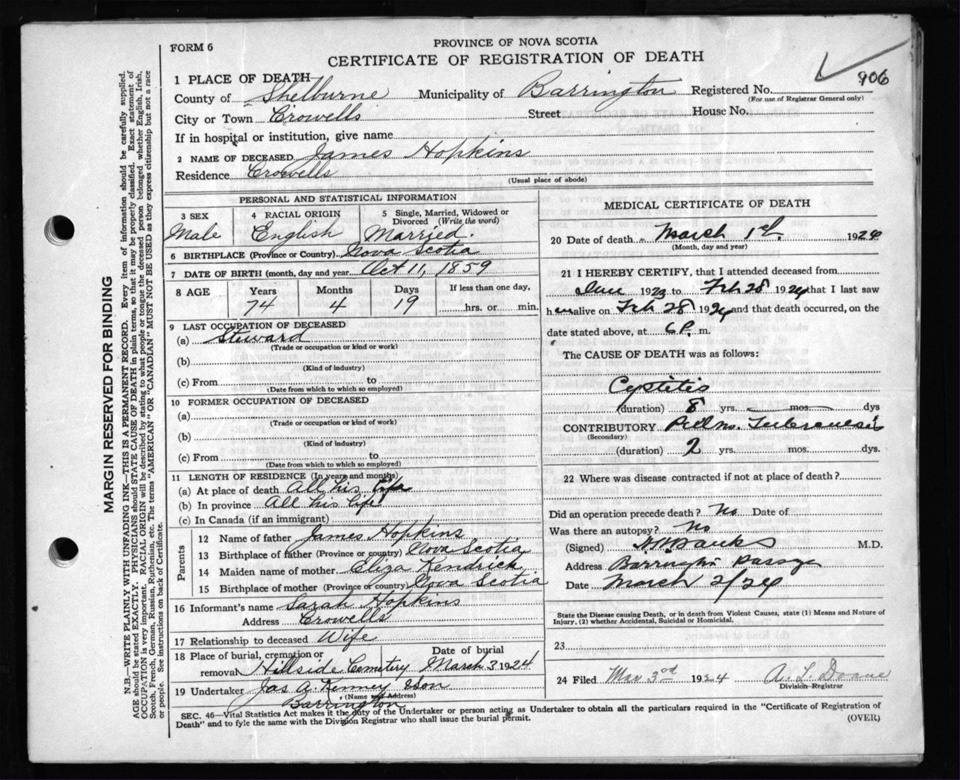 FORM 6
PROVINCE OF NOVA SCOTIA
CERTIFICATE OF REGISTRATION OF DEATH
906
1 PLACE OF DEATH
County of Shelburne Municipality of Barrington Registered No.
(For use of Registrar General only)
City or Town Crowells Street House No.
If in hospital or institution, give name
2 NAME OF DECEASED James Hopkins
Residence Crowells
(Usual place of abode)
PERSONAL AND STATISTICAL INFORMATION
3 SEX Male
4 RACIAL ORIGIN English
5 Single, Married, Widowed or Divorced (Write the word) Married.
6 BIRTHPLACE (Province or Country) Nova Scotia
7 DATE OF BIRTH (month, day and year) Oct 11, 1859
8 AGE Years Months Days If less than one day,
74 4 19 hrs. or min.
9 LAST OCCUPATION OF DECEASED
(a) Steward
(Trade or occupation or kind or work)
(b)
(Kind of industry)
(c) From to
(Date from which to which so employed)
10 FORMER OCCUPATION OF DECEASED
(a)
(Trade or occupation or kind of work)
(b)
(Kind of industry)
(c) From to
(Date from which to which so employed)
11 LENGTH OF RESIDENCE (In years and months)
(a) At place of death All his life
(b) In province All his life
(c) In Canada (if an immigrant)
Parents
12 Name of father James Hopkins
13 Birthplace of father (Province or country) Nova Scotia
14 Maiden name of mother Eliza Kendrick
15 Birthplace of mother (Province or country) Nova Scotia
16 Informant's name Sarah Hopkins
Address Crowells
17 Relationship to deceased Wife
18 Place of burial, cremation or removal Hillside Cemetry Date of burial March 3 1924
19 Undertaker Jas A. Kenney & Son
(Name and Address)
Barrington
MEDICAL CERTIFICATE OF DEATH
20 Date of death March 1st, 1924
(Month, day and year)
21 I HEREBY CERTIFY, that I attended deceased from
1923 to Feb 28 1924 that I last saw
h im alive on Feb 28 1924 and that death occurred, on the
date stated above, at 6 P. m.
The CAUSE OF DEATH was as follows:
Cystitis
(duration) 8 yrs. mos. dys
CONTRIBUTORY Pulmo. Tuberculosis
(Secondary)
(duration) 2 yrs. mos. dys.
22 Where was disease contracted if not at place of death?
Did an operation precede death? No Date of
Was there an autopsy? No
(Signed) Banks M.D.
Address Barrington Passage
Date March 2/24
State the Disease causing Death, or in death from Violent Causes, state (1) Means and Nature of
Injury, (2) whether Accidental, Suicidal or Homicidal.
23
24 Filed Mar 3rd 1924 A. L. Doane
Division-Registrar
SEC. 46—Vital Statistics Act makes it the duty of the Undertaker or person acting as Undertaker to obtain all the particulars required in the "Certificate of Registration of
Death" and to fyle the same with the Division Registrar who shall issue the burial permit.
(OVER)
MARGIN RESERVED FOR BINDING
N.B.—WRITE PLAINLY WITH UNFADING INK—THIS IS A PERMANENT RECORD. Every item of information should be carefully supplied.
AGE should be stated EXACTLY. PHYSICIANS should STATE CAUSE OF DEATH in plain terms, so that it may be properly classified. Exact statement of
OCCUPATION is very important. RACIAL ORIGIN will be described by stating to what people or tongue the deceased person belonged whether English, Irish,
Scotch, French, German, Russian, Ruthenian, etc. The terms "AMERICAN" OR "CANADIAN" MUST NOT BE USED as they express citizenship but not a race
or people. See instructions on back of Certificate.